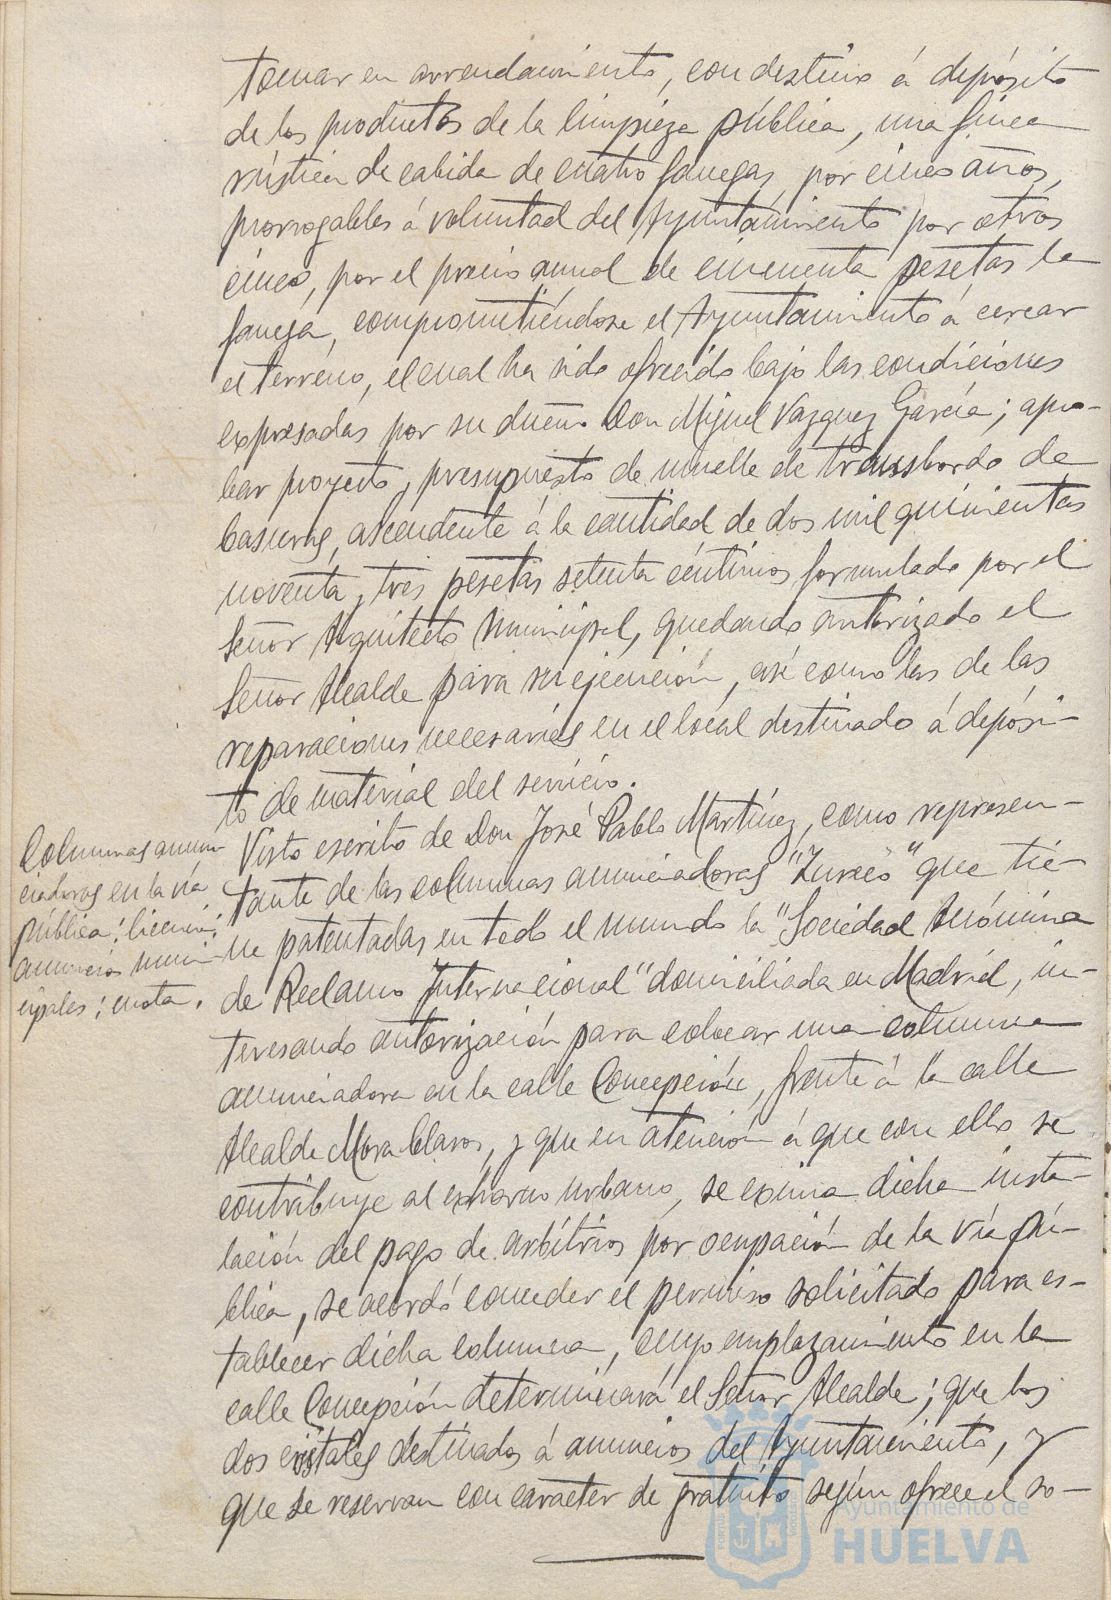 tomar en arrendamiento, con destino á depósito
de los productos de la limpieza pública, una finca
rústica de cabida de cuatro fanegas, por cinco años,
prorrogables á voluntad del Ayuntamiento por otros
cinco, por el precio anual de cincuenta pesetas la
fanega, comprometiéndose el Ayuntamiento á cercar
el terreno, el cual ha sido ofrecido bajo las condiciones
expresadas por su dueño Don Miguel Vazquez García; apro-
bar proyecto y presupuesto de muelle de transbordo de
basuras, ascendente á la cantidad de dos mil quinientas
noventa y tres pesetas setenta céntimos formulado por el
Señor Arquitecto Municipal, quedando autorizado el
Señor Alcalde para su ejecución, así como las de las
reparaciones necesarias en el local destinado á depósi-
to de material del servicio.
Columnas anun-
ciadoras en la vía
pública: licencia;
anuncios muni-
cipales; cuota.
Visto escrito de Don José Pablo Martínez, como represen-
tante de las columnas anunciadoras "" que tie-
ne patentadas en todo el mundo la "Sociedad Anónima
de Reclamo Internacional" domiciliada en Madrid, in-
teresando autorización para colocar una columna
anunciadora en la calle Concepción, frente á la calle
Alcalde Mora Claros, y que en atención á que con ello se
contribuye al exhorno urbano, se exima dicha insta-
lación del pago de arbitrios por ocupación de la vía pú-
blica, se acordó conceder el permiso solicitado para es-
tablecer dicha columna, cuyo emplazamiento en la
calle Concepción determinará el Señor Alcalde; que los
dos cristales destinados á anuncios del Ayuntamiento, y
que se reservan con caracter de gratuito según ofrece el so-
Ayuntamiento de
HUELVA